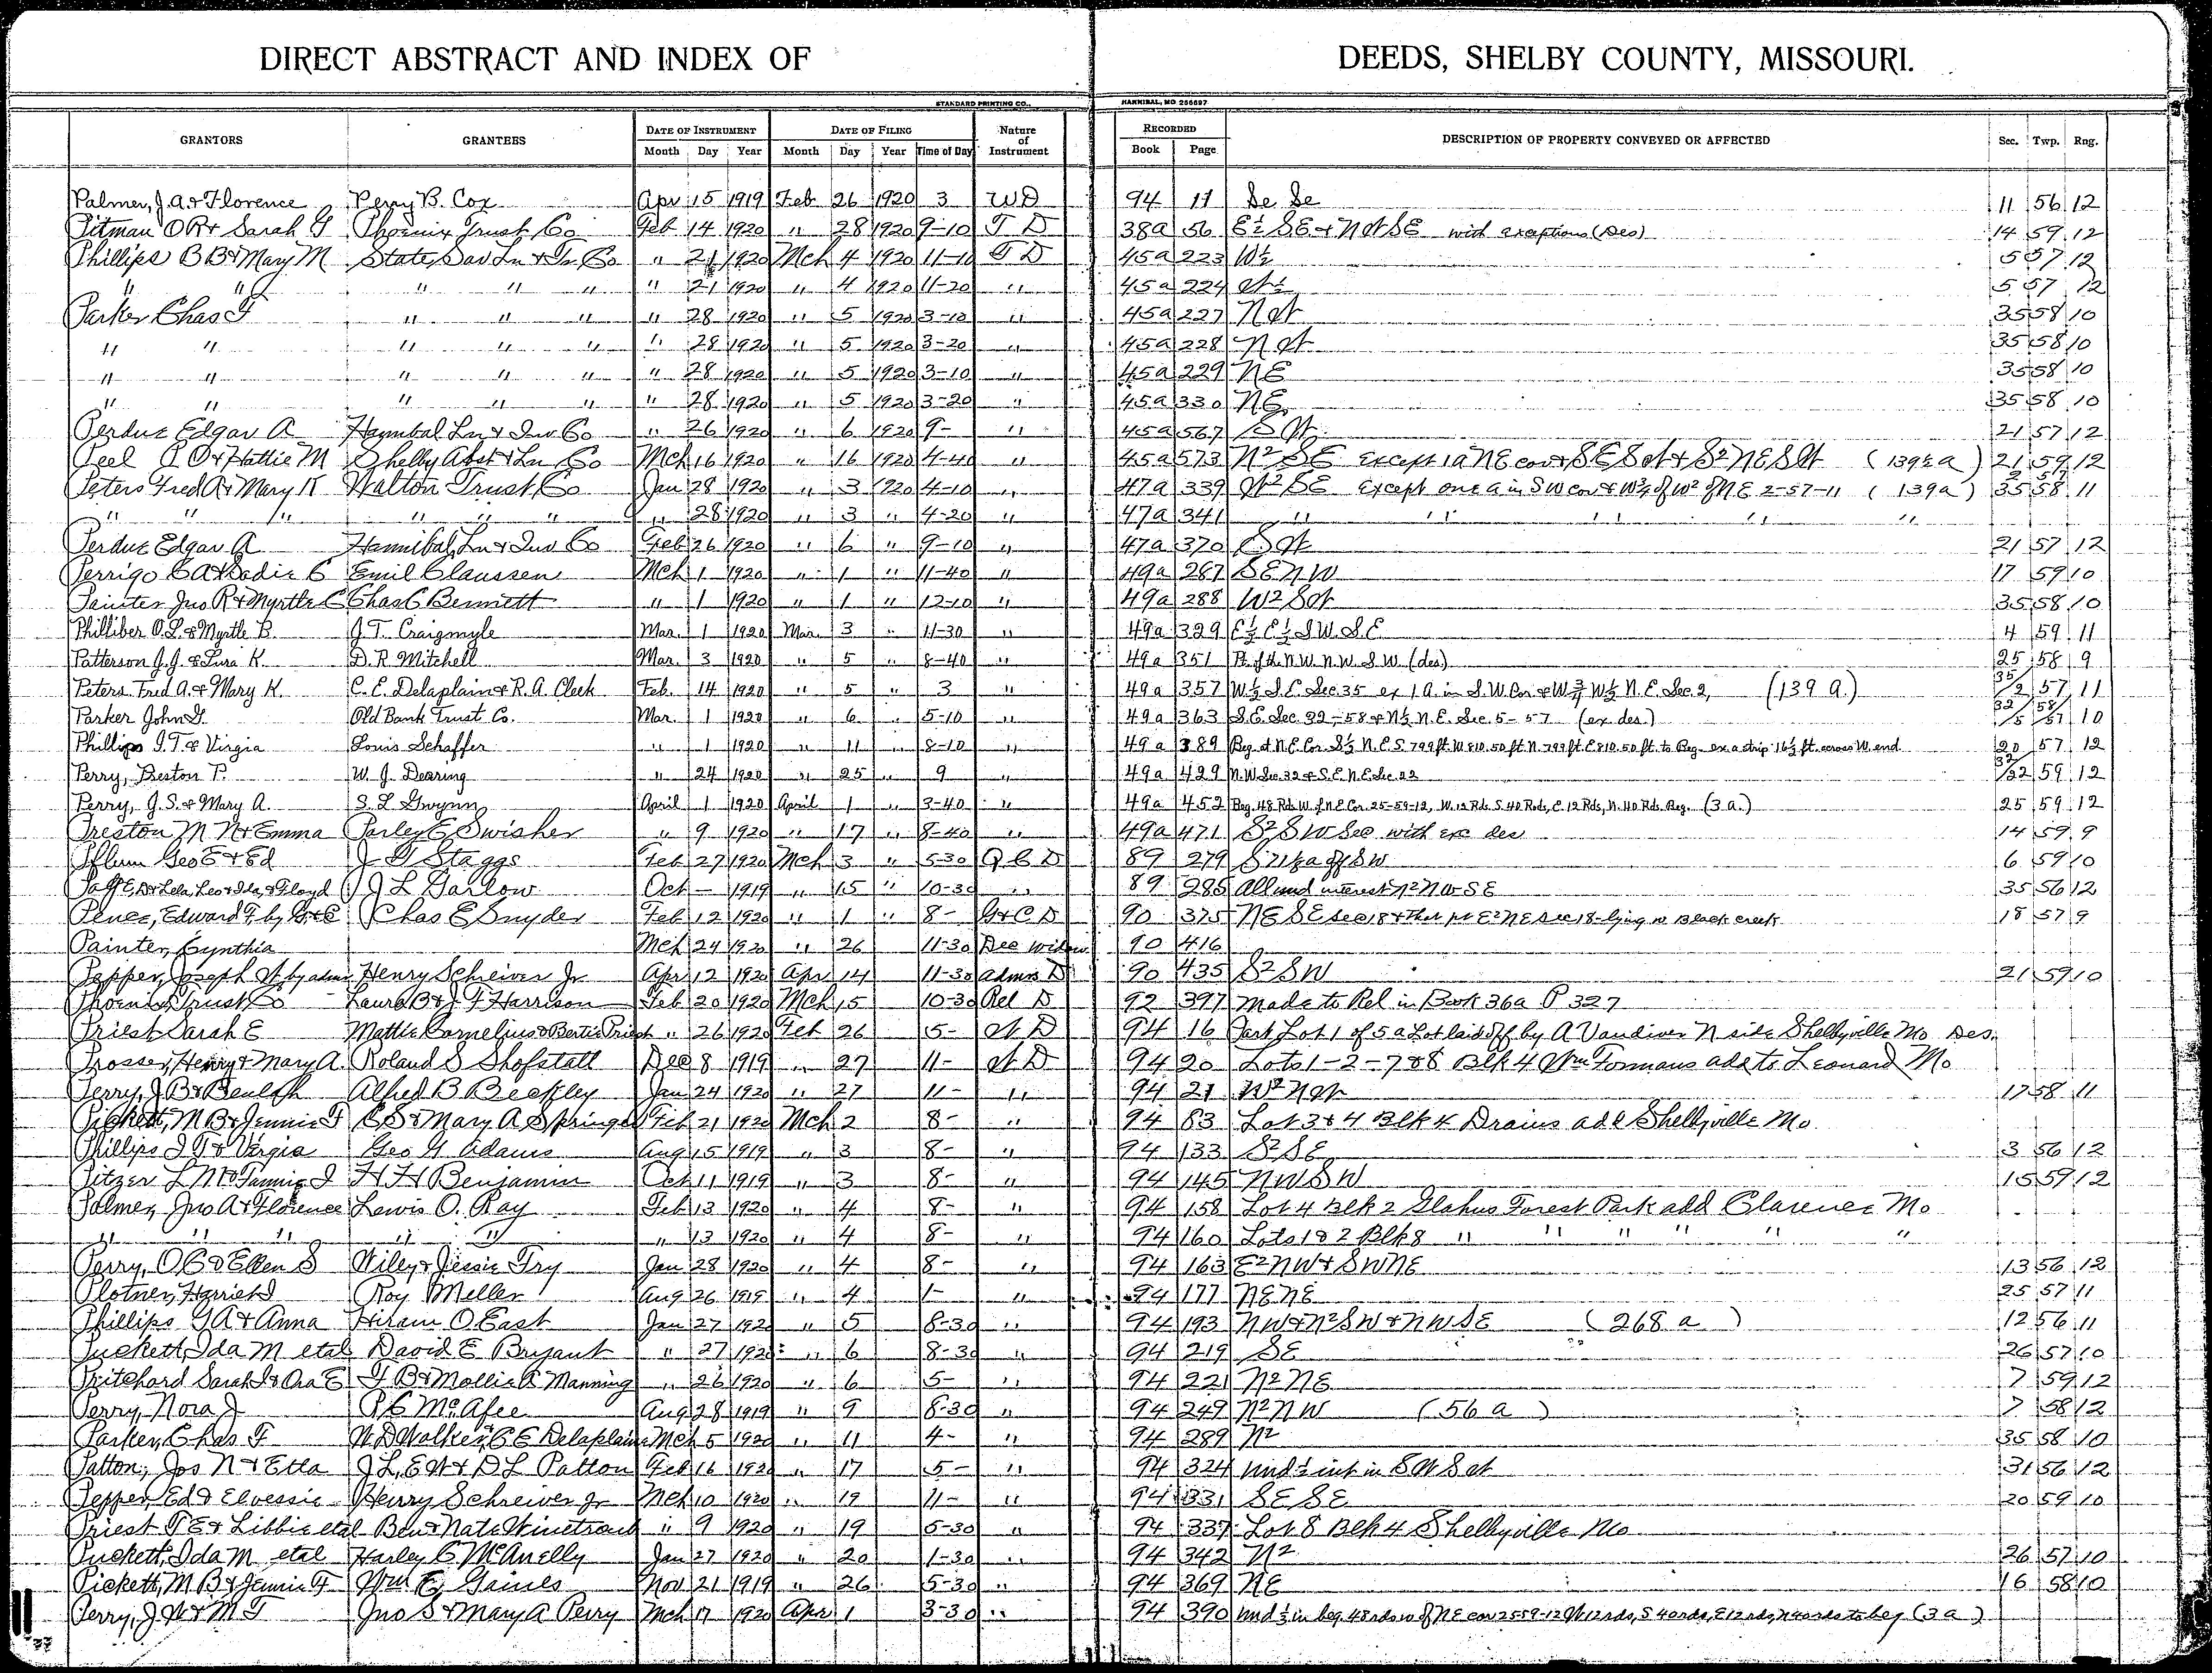 DIRECT ABSTRACT AND INDEX OF DEEDS, SHELBY COUNTY, MISSOURI.
STANDARD PRINTING CO., HANNIBAL, MO 255697
GRANTORS GRANTEES DATE OF INSTRUMENT DATE OF FILING Nature of Instrument RECORDED DESCRIPTION OF PROPERTY CONVEYED OR AFFECTED Sec. Twp. Rng.
Month Day Year Month Day Year Time of Day Book Page
Palmer, J.A. & Florence Perry B. Cox Apr 15 1919 Feb 26 1920 3 WD 94 11 Se Se 11 56 12
Pitman O R & Sarah Phoenix Trust Co Feb 14 1920 " 28 1920 9-10 T D 38a 56 E½ SE & NWSE with exceptions (Des) 14 59 12
Phillips B B & Mary M State Sav Ln & Tr Co " 21 1920 Mch 4 1920 11-10 T D 45a 223 W½ 5 57 12
" " " " " " 21 1920 " 4 1920 11-20 " 45a 224 W½ 5 57 12
Parker Chas F " " " " 28 1920 " 5 1920 3-10 " 45a 227 NW 35 58 10
" " " " " " 28 1920 " 5 1920 3-20 " 45a 228 NW 35 58 10
" " " " " " 28 1920 " 5 1920 3-10 " 45a 229 NE 35 58 10
" " " " " " 28 1920 " 5 1920 3-20 " 45a 330 NE 35 58 10
Perdue Edgar A Hannibal Ln & Inv Co " 26 1920 " 6 1920 9- " 45a 567 SW 21 57 12
Peel & Hattie M Shelby Abst & Ln Co Mch 16 1920 " 16 1920 4-40 " 45a 573 N² SE except 1a NE cor & SESW & S² NESW (139½ a) 21 59 12
Peters Fred A & Mary K Walton Trust Co Jan 28 1920 " 3 1920 4-10 " 47a 339 W² SE except one a in SW cor & W¾ of W² of NE 2-57-11 (139a) 35 58 11
" " " " " " " 28 1920 " 3 " 4-20 " 47a 341 " " " " "
Perdue Edgar A Hannibal Ln & Inv Co Feb 26 1920 " 6 " 9-10 " 47a 370 SW 21 57 12
Perrigo C A & Sadie C Emil Claussen Mch 1 1920 " 1 " 11-40 " 49a 287 SENW 17 59 10
Painter Jno R & Myrtle C Chas C Bennett " 1 1920 " 1 " 12-10 " 49a 288 W² SW 35 58 10
Philliber O.L. & Myrtle B. J.T. Craigmyle Mar. 1 1920 Mar. 3 " 11-30 " 49a 329 E½ E½ S W. S.E 4 59 11
Patterson J.J. & Lura K. D.R. Mitchell Mar. 3 1920 " 5 " 8-40 " 49a 351 Pt of the N.W. N.W. S.W. (des) 25 58 9
Peters Fred A. & Mary K. C.E. Delaplain & R.A. Cleek Feb. 14 1920 " 5 " 3 " 49a 357 W½ S.E. Sec. 35 ex 1 A. in S.W. Cor & W¾ W½ N.E. Sec. 2, (139 A.) 35/2 57 11
Parker John Old Bank Trust Co. Mar. 1 1920 " 6 " 5-10 " 49a 363 S.E. Sec. 32-58 & N½ N.E. Sec. 5-57 (ex des.) 32/5 58/57 10
Phillips I.T. & Virgia Louis Schaffer " 1 1920 " 11 " 8-10 " 49a 389 Beg. at N.E. Cor. S½ N.E. S. 799 ft. W 810.50 ft. N. 799 ft. E 810.50 ft. to Beg. ex a strip 16½ ft. across W. end 20 57 12
Perry, Preston P. W.J. Dearing " 24 1920 " 25 " 9 " 49a 429 N.W. Sec 32 & S.E. N.E. Sec. 32 59 12
Perry, J.S. & Mary A. S.L. Gwynn April 1 1920 April 1 " 3-40 " 49a 452 Beg. 48 Rds W. of N.E. Cor. 25-59-12, W. 12 Rds. S 40 Rods, E. 12 Rds, N. 40 Rds. Beg. (3 a.) 25 59 12
Preston M N & Emma Parley E Swisher " 9 1920 " 17 " 8-40 " 49a 471 S² S W Sec with exc des 14 59 9
Pflum Geo E & Ed J Staggs Feb 27 1920 Mch 3 " 5-30 Q C D 89 279 of SW 6 59 10
& Lela, Leo & Ida, & Floyd J L Garlow Oct - 1919 " 15 " 10-30 " 89 285 All und interest N² NWSE 35 56 12
Pence, Edward F. by G & C Chas E Snyder Feb 12 1920 " 1 " 8- G & C D 90 375 NESE sec 18 & that pt E² NE sec 18 lying n Black creek 18 57 9
Painter, Cynthia Mch 24 1920 " 26 11-30 Dec Widow 90 416
Pepper, Joseph W by admr Henry Schreiver Jr Apr 12 1920 Apr 14 11-30 Admrs D 90 435 S² SW 21 59 10
Phoenix Trust Co Laura B & J F Harrison Feb 20 1920 Mch 15 10-30 Rel D 92 397 Made to Rel in Book 36a P 327
Priest Sarah E Mattie Cornelius & Bertie Priest " 26 1920 Feb 26 5- W D 94 16 Part Lot 1 of 5 a Lot laid off by A Vandiver N side Shelbyville Mo Des.
Prosser, Henry & Mary A. Roland S Shofstall Dec 8 1919 " 27 11- W D 94 20 Lots 1-2-7&8 Blk 4 Wm Formans add to Leonard Mo
Perry, J B & Beulah Alfred B Beatley Jan 24 1920 " 27 11- " 94 21 W² NW 17 58 11
Pickett, M B & Jennie F C S & Mary A Springer Feb 21 1920 Mch 2 8- " 94 83 Lot 3 & 4 Blk 4 Drains add Shelbyville Mo
Phillips I T & Virgia Geo G Adams Aug 15 1919 " 3 8- " 94 133 S² SE 3 56 12
Pitzer L M & Fannie I H H Benjamin Oct 11 1919 " 3 8- " 94 145 NWSW 15 59 12
Palmer, Jno A & Florence Lewis O. Ray Feb 13 1920 " 4 8- " 94 158 Lot 4 Blk 2 Glahns Forest Park add Clarence Mo
" " " " " " 13 1920 " 4 8- " 94 160 Lots 1 & 2 Blk 8 " " " " " "
Perry, O C & Ellen S Wiley & Jessie Fry Jan 28 1920 " 4 8- " 94 163 E² NW & SWNE 13 56 12
Plotner, Harriet Roy Meller Aug 26 1919 " 4 1- " 94 177 NENE 25 57 11
Phillips G A & Anna Hiram O East Jan 27 1920 " 5 8-30 " 94 193 NW & N² SW & NWSE (268 a) 12 56 11
Puckett, Ida M etal David E Bryant " 27 1920 " 6 8-30 " 94 219 SE 26 57 10
Pritchard Sarah & Ora E B & Mollie Manning " 26 1920 " 6 5- " 94 221 N² NE 7 59 12
Perry, Nora J P C McAfee Aug 28 1919 " 9 8-30 " 94 249 N² NW (56 a) 7 58 12
Parker, Chas F W D Walker, C E Delaplain Mch 5 1920 " 11 4- " 94 289 N² 35 58 10
Patton, Jos N & Etta J L, E W & D L Patton Feb 16 1920 " 17 5- " 94 324 und ½ int in SWSW 31 56 12
Pepper, Ed & Elvessie Henry Schreiver Jr Mch 10 1920 " 19 11- " 94 331 SESE 20 59 10
Priest T E & Libbie etal Ben & Nate Winetraub " 9 1920 " 19 5-30 " 94 337 Lot 8 Blk 4 Shelbyville Mo
Puckett, Ida M etal Harley C McAnelly Jan 27 1920 " 20 1-30 " 94 342 N² 26 57 10
Pickett, M B & Jennie F Wm E Gaines Nov 21 1919 " 26 5-30 " 94 369 NE 16 58 10
Perry, J W & M F Jno S & Mary A Perry Mch 17 1920 Apr 1 3-30 " 94 390 und ½ in beg. 48 rds w of NE cor 25 59-12 W 12 rds, S 40 rds, E 12 rds, N 40 rds to beg (3 a)